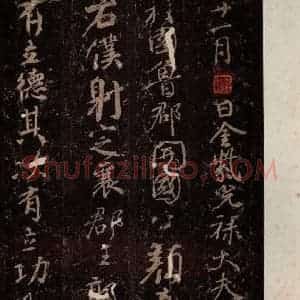 十一月日金紫光祿大夫
柱國魯郡開國公顏真
右僕射定襄郡王郭
有立德其次有立功
Shufaziliao.com